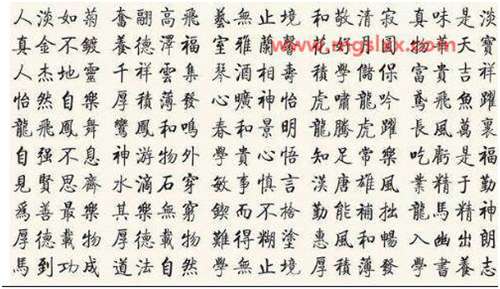 人淡如菊 奮翮高飛 藝無止境 和敬清寂 真味是淡
真金不鍍 養德澤福 室雅蘭馨 花好月圓 物華天寶
www.mgslxx.com
人杰地靈 千祥雲集 琴 酒相 積學儲 富貴吉祥
怡然自樂 厚積薄發 心曠神怡 虎嘯龍吟 鳶飛魚躍
龍飛鳳舞 鸞鳳和鳴 春和景明 龍騰虎躍 長風萬裏
自强不息 神游物外 學貴心悟 知足常樂 吃虧是福
見賢思齊 水滴石穿 敏事慎言 漢唐雄風 業精于勤
爲善最樂 其樂無窮 鍥而不捨 勤能補拙 龍馬精神
厚德載物 厚德載物 難得糊塗 惠風和暢 入幽出朗
馬到功成 道法自然 學無止境 厚積薄發 學書養志